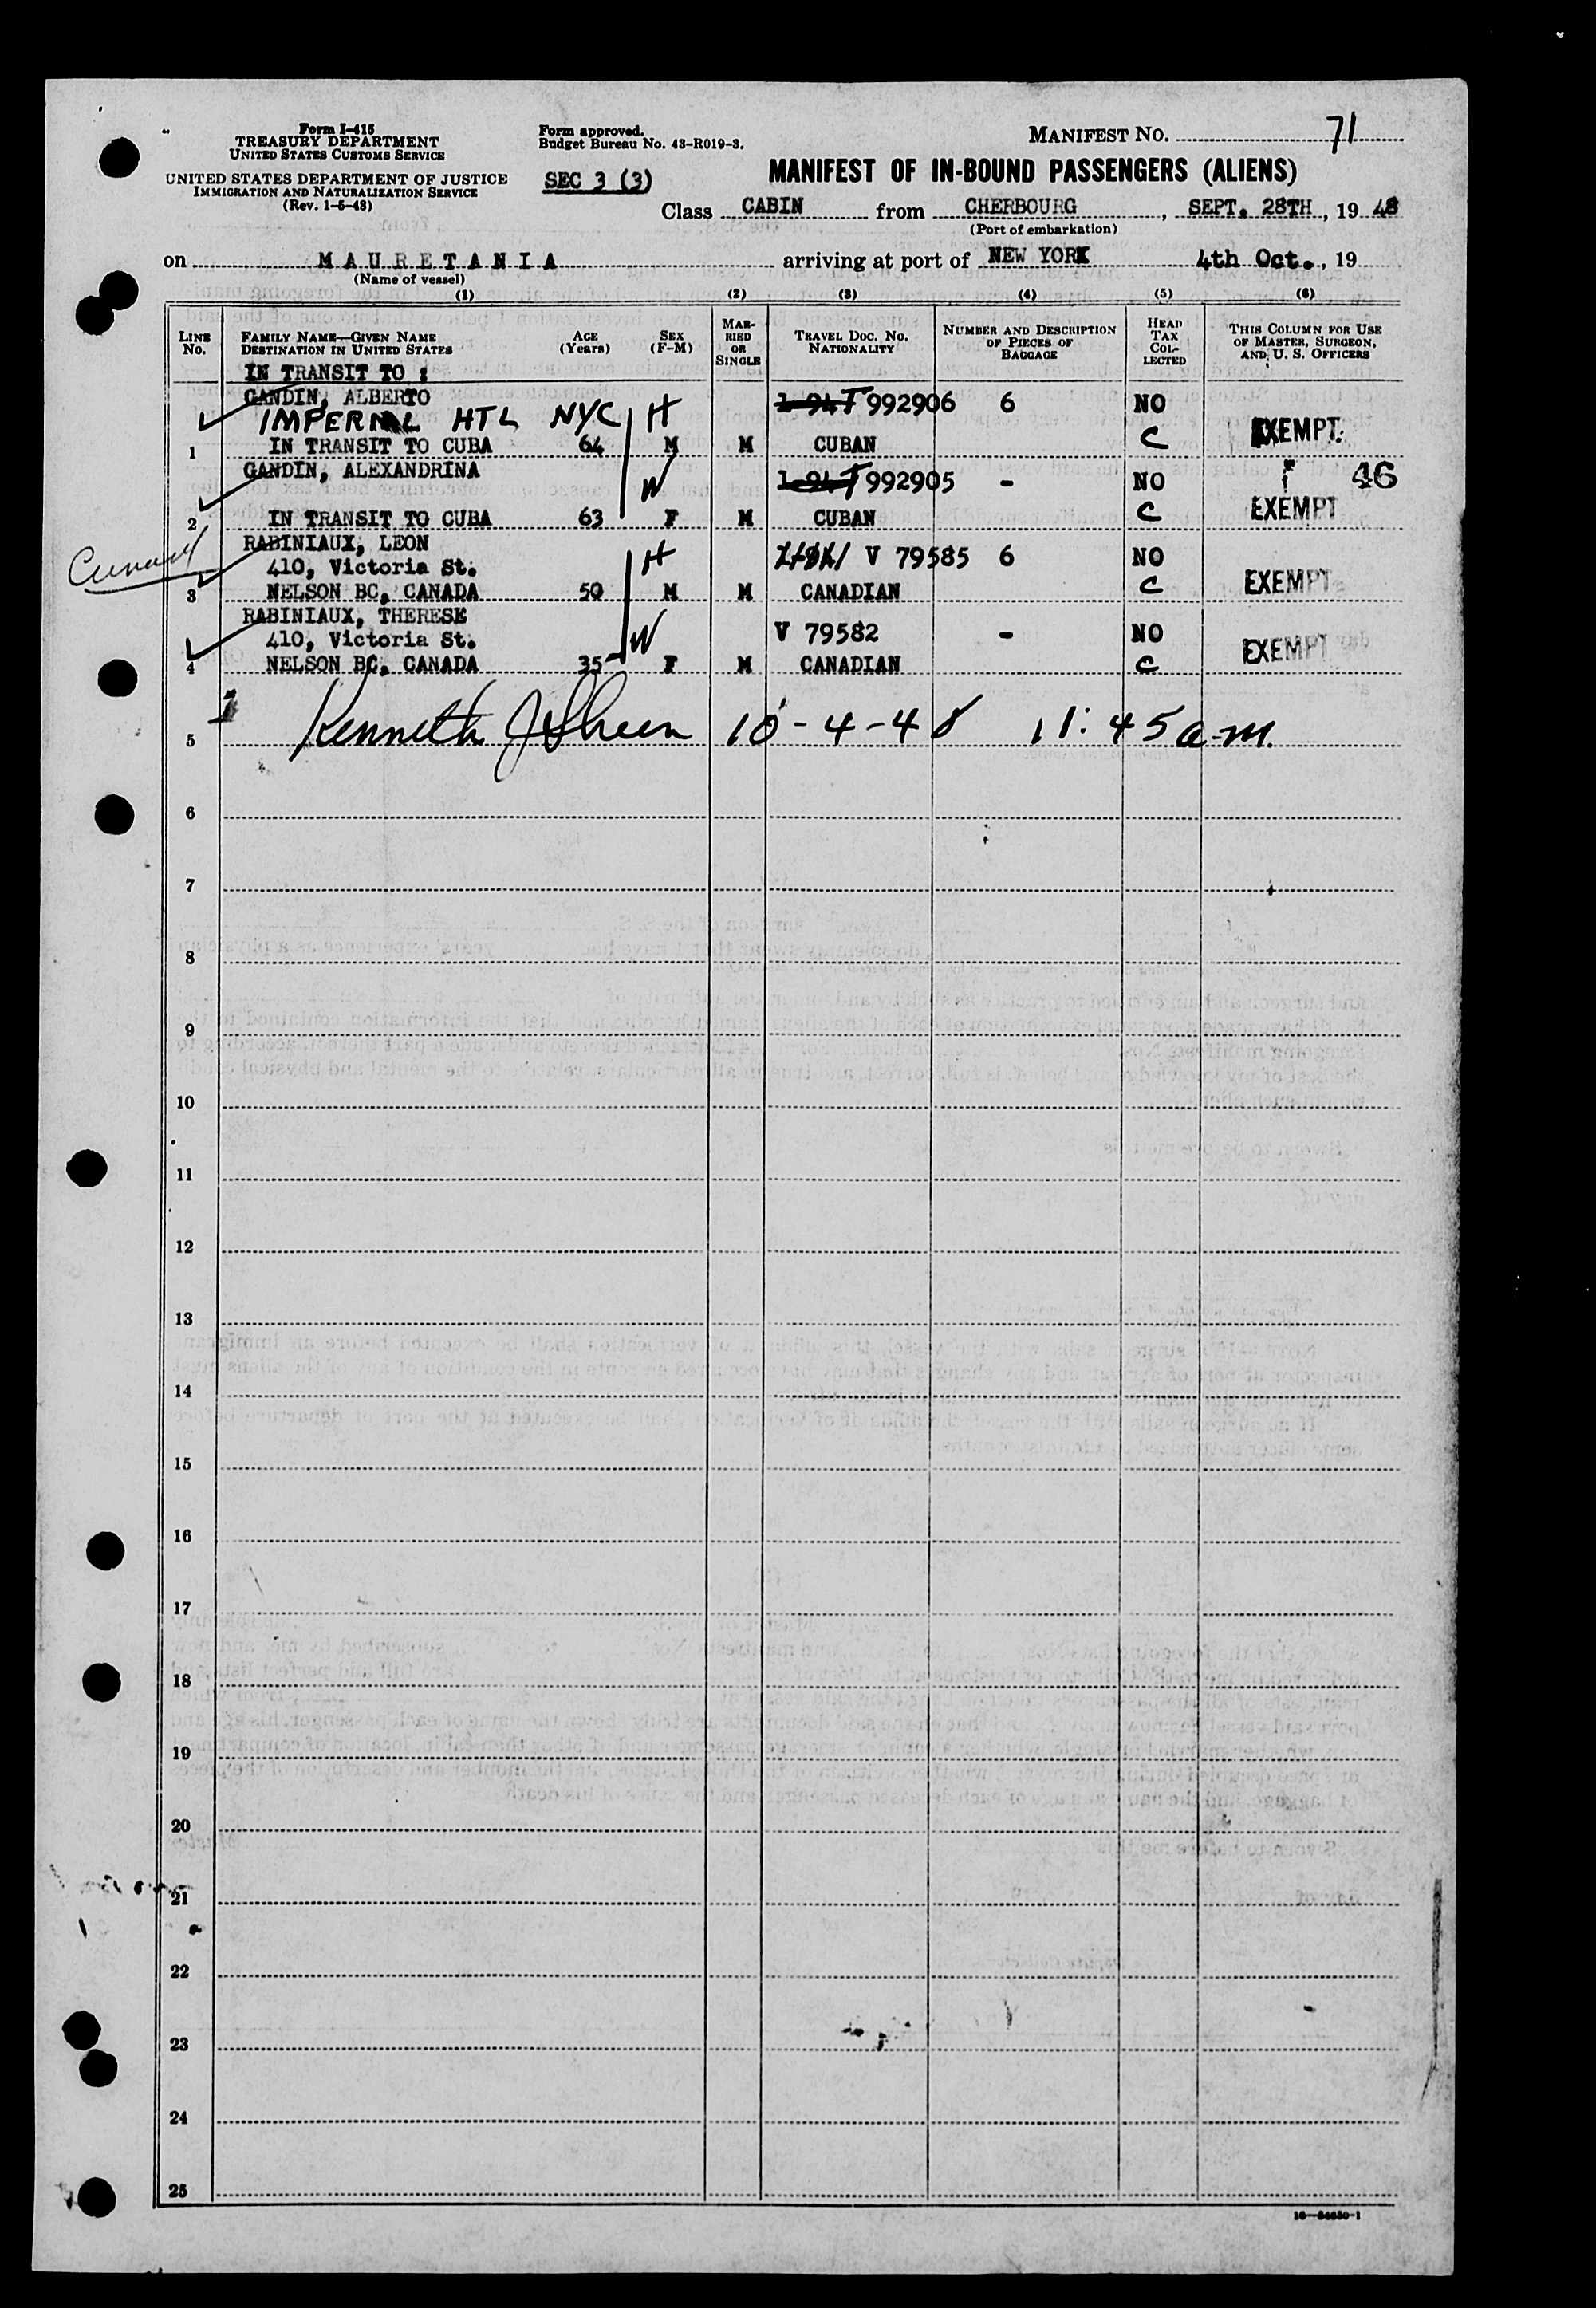 Form I-415
TREASURY DEPARTMENT
UNITED STATES CUSTOMS SERVICE
UNITED STATES DEPARTMENT OF JUSTICE
IMMIGRATION AND NATURALIZATION SERVICE
(Rev. 1-5-48)
Form approved.
Budget Bureau No. 43-R019-3.
SEC 3 (3)
MANIFEST NO. 71
MANIFEST OF IN-BOUND PASSENGERS (ALIENS)
Class CABIN from CHERBOURG, SEPT. 28TH, 19 48
(Port of embarkation)
on MAURETANIA arriving at port of NEW YORK 4th Oct., 19
(Name of vessel)
(1) (2) (3) (4) (5) (6)
LINE No.
FAMILY NAME—GIVEN NAME
DESTINATION IN UNITED STATES
AGE (Years)
SEX (F-M)
MARRIED OR SINGLE
TRAVEL DOC. NO.
NATIONALITY
NUMBER AND DESCRIPTION OF PIECES OF BAGGAGE
HEAD TAX COLLECTED
THIS COLUMN FOR USE OF MASTER, SURGEON, AND U. S. OFFICERS
IN TRANSIT TO :
GANDIN, ALBERTO T 992906 6 NO
IMPERIAL HTL NYC H EXEMPT
1 IN TRANSIT TO CUBA 64 M M CUBAN C
GANDIN, ALEXANDRINA W T 992905 - NO 46
2 IN TRANSIT TO CUBA 63 F M CUBAN C EXEMPT
Cunard
RABINIAUX, LEON
410, Victoria St. H V 79585 6 NO
3 NELSON BC, CANADA 50 M M CANADIAN C EXEMPT
RABINIAUX, THERESE
410, Victoria St. W V 79582 - NO
4 NELSON BC, CANADA 35 F M CANADIAN C EXEMPT
5 Kenneth J Sheen 10-4-48 11:45 a.m.
6
7
8
9
10
11
12
13
14
15
16
17
18
19
20
21
22
23
24
25